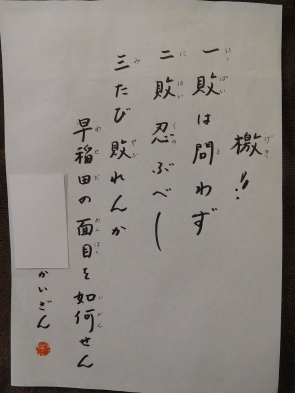 檄!!
一敗は問わず
二敗忍ぶべし
三たび敗れんか
早稲田の面目を如何せん
かいざん